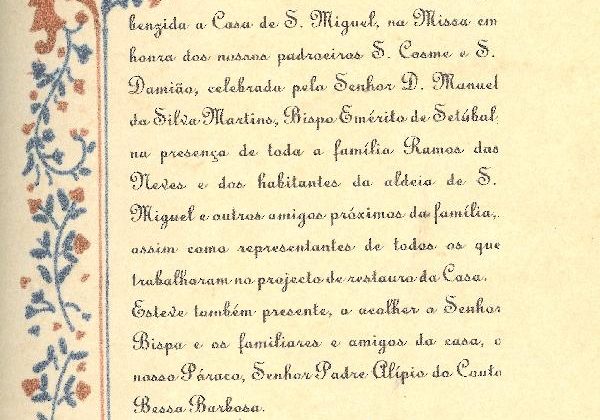 benzida a Casa de S. Miguel, na Missa em
honra dos nossos padroeiros S. Cosme e S.
Damião, celebrada pelo Senhor D. Manuel
da Silva Martins, Bispo Emérito de Setúbal,
na presença de toda a família Ramos das
Neves e dos habitantes da aldeia de S.
Miguel e outros amigos próximos da família,
assim como representantes de todos os que
trabalharam no projecto de restauro da Casa.
Esteve também presente, a acolher o Senhor
Bispo e os familiares e amigos da casa, o
nosso Pároco, Senhor Padre Alípio do Couto
Bessa Barbosa.